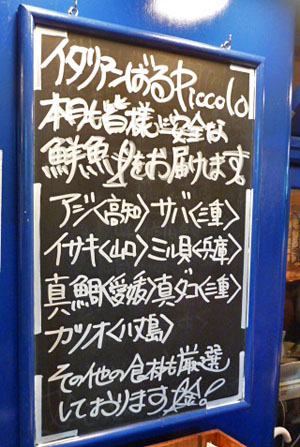 イタリアンばるPiccolo
本日も皆様に安全な
鮮魚をお届けます。
アジ〈高知〉サバ〈三重〉
イサキ〈山口〉ミル貝〈兵庫〉
真鯛〈愛媛〉真ダコ〈三重〉
カツオ〈八丈島〉
その他の食材も厳選
しております!